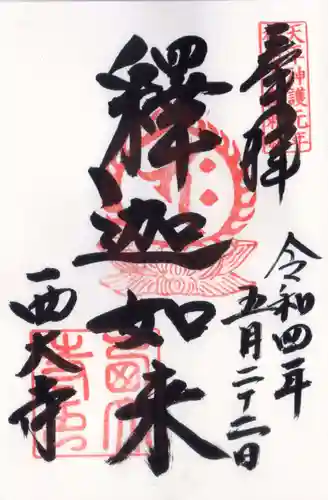 奉拝
天平神護元年
令和四年
五月二十二日
釋迦如来
西大寺